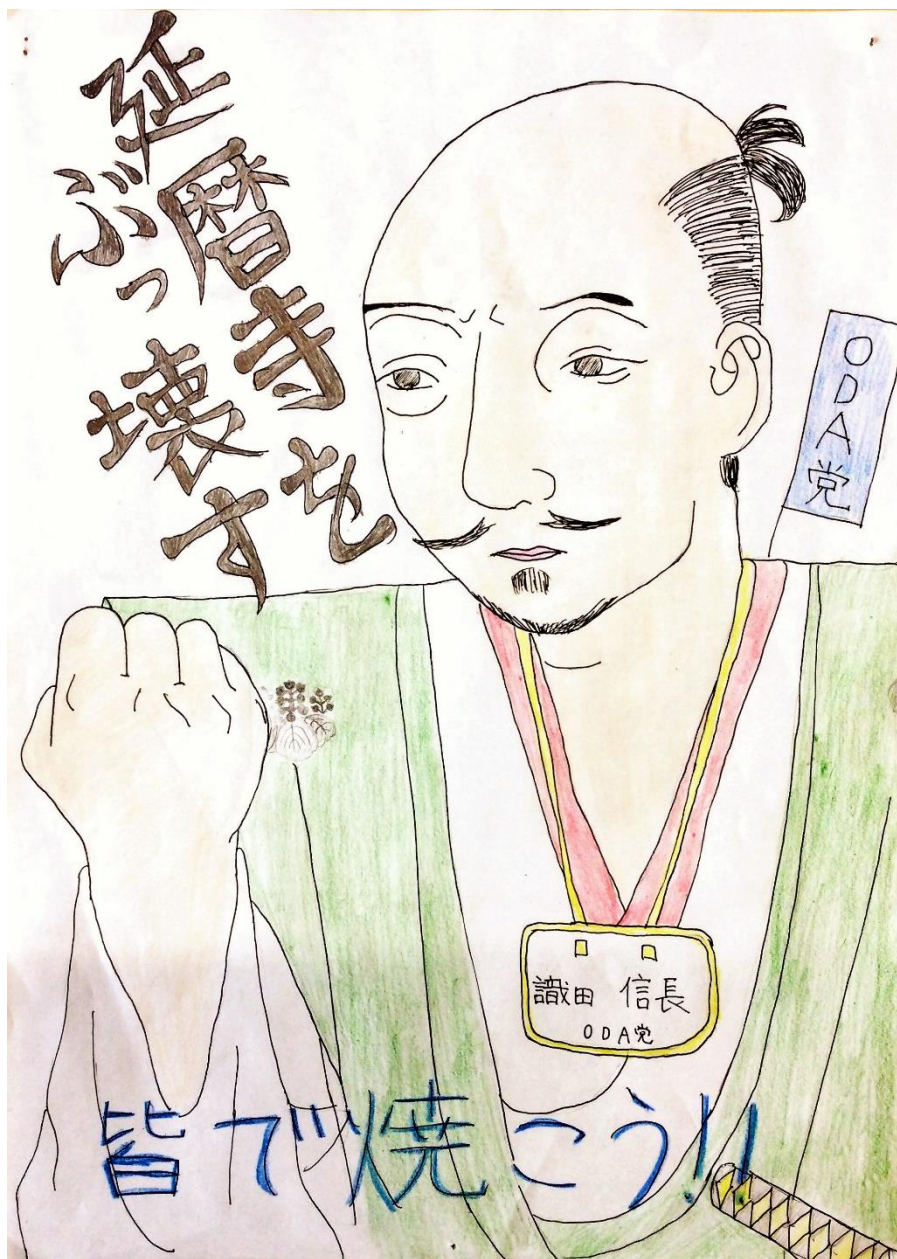 延暦寺を
ぶっ壊す
ODA党
識田 信長
ODA党
皆で焼こう!!